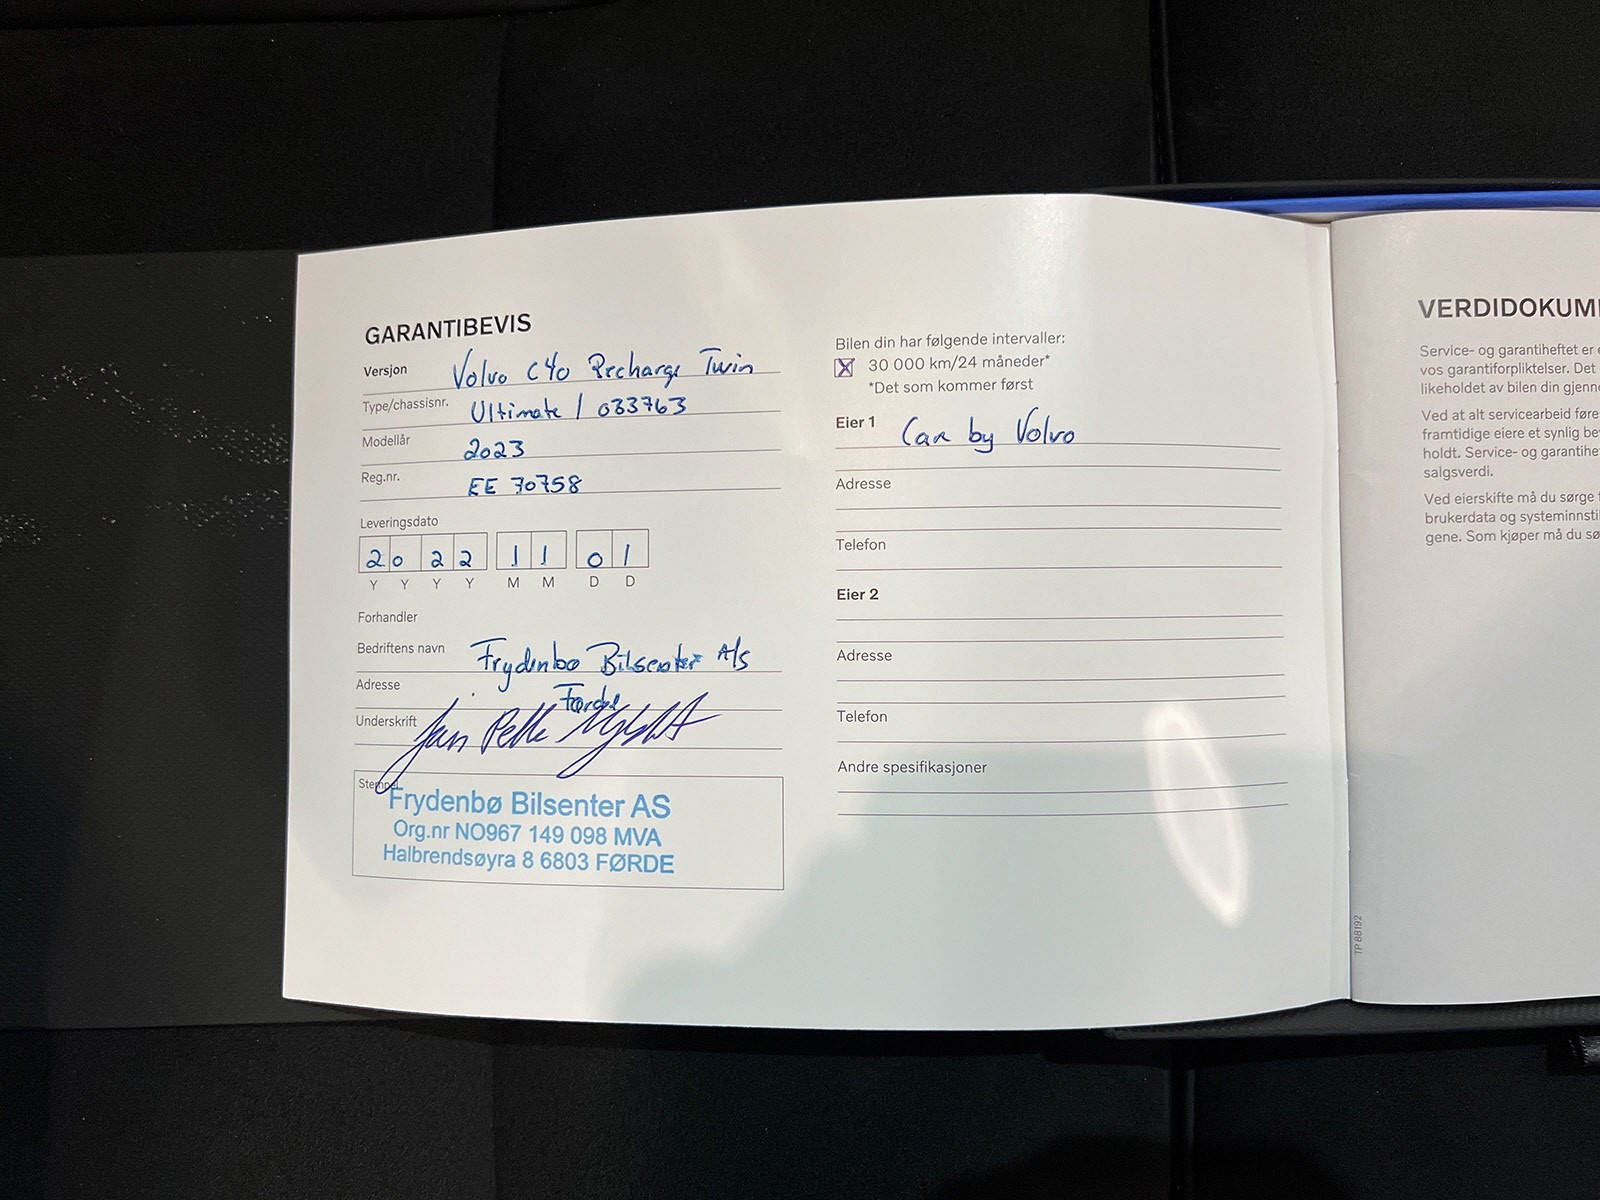 GARANTIBEVIS
Versjon Volvo C40 Recharge Twin
Type/chassisnr. Ultimate / 033763
Modellår 2023
Reg.nr. EE 70758
Leveringsdato
2 0 2 2 1 1 0 1
Y Y Y Y M M D D
Forhandler
Bedriftens navn Frydenbø Bilsenter A/S
Adresse Førde
Underskrift Jan Pelle
Stempel
Frydenbø Bilsenter AS
Org.nr NO967 149 098 MVA
Halbrendsøyra 8 6803 FØRDE
Bilen din har følgende intervaller:
X 30 000 km/24 måneder*
*Det som kommer først
Eier 1 Car by Volvo
Adresse
Telefon
Eier 2
Adresse
Telefon
Andre spesifikasjoner
TP 88192
VERDIDOKUM
Service- og garantiheftet er
vos garantiforpliktelser. Det
likeholdet av bilen din gjenn
Ved at alt servicearbeid føre
framtidige eiere et synlig be
holdt. Service- og garantihe
salgsverdi.
Ved eierskifte må du sørge f
brukerdata og systeminnsti
gene. Som kjøper må du sø